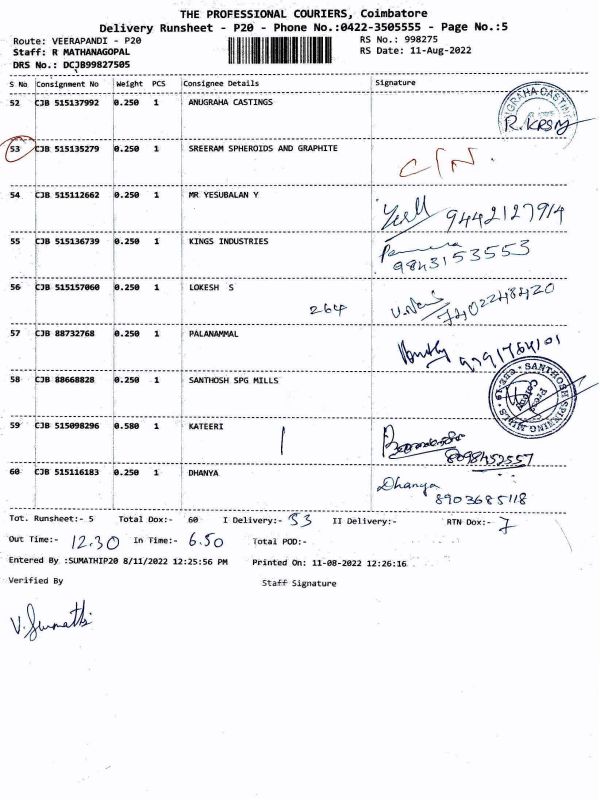 THE PROFESSIONAL COURIERS, Coimbatore
Delivery Runsheet - P20 - Phone No.:0422-3505555 - Page No.:5
Route: VEERAPANDI - P20 RS No.: 998275
Staff: R MATHANAGOPAL RS Date: 11-Aug-2022
DRS No.: DCJB99827505
S No Consignment No Weight PCS Consignee Details Signature
52 CJB 515137992 0.250 1 ANUGRAHA CASTINGS
53 CJB 515135279 0.250 1 SREERAM SPHEROIDS AND GRAPHITE C/N.
54 CJB 515112662 0.250 1 MR YESUBALAN Y 9442127914
55 CJB 515136739 0.250 1 KINGS INDUSTRIES 9843153553
56 CJB 515157060 0.250 1 LOKESH S 264 7402248420
57 CJB 88732768 0.250 1 PALANAMMAL
58 CJB 88668828 0.250 1 SANTHOSH SPG MILLS SANTHOSH SPINNING MILLS
59 CJB 515098296 0.580 1 KATEERI 8098452557
60 CJB 515116183 0.250 1 DHANYA Dhanya 8903685118
Tot. Runsheet:- 5 Total Dox:- 60 I Delivery:- 53 II Delivery:- RTN Dox:- 7
Out Time:- 12.30 In Time:- 6.50 Total POD:-
Entered By :SUMATHIP20 8/11/2022 12:25:56 PM Printed On: 11-08-2022 12:26:16
Verified By Staff Signature
V. Sumathi